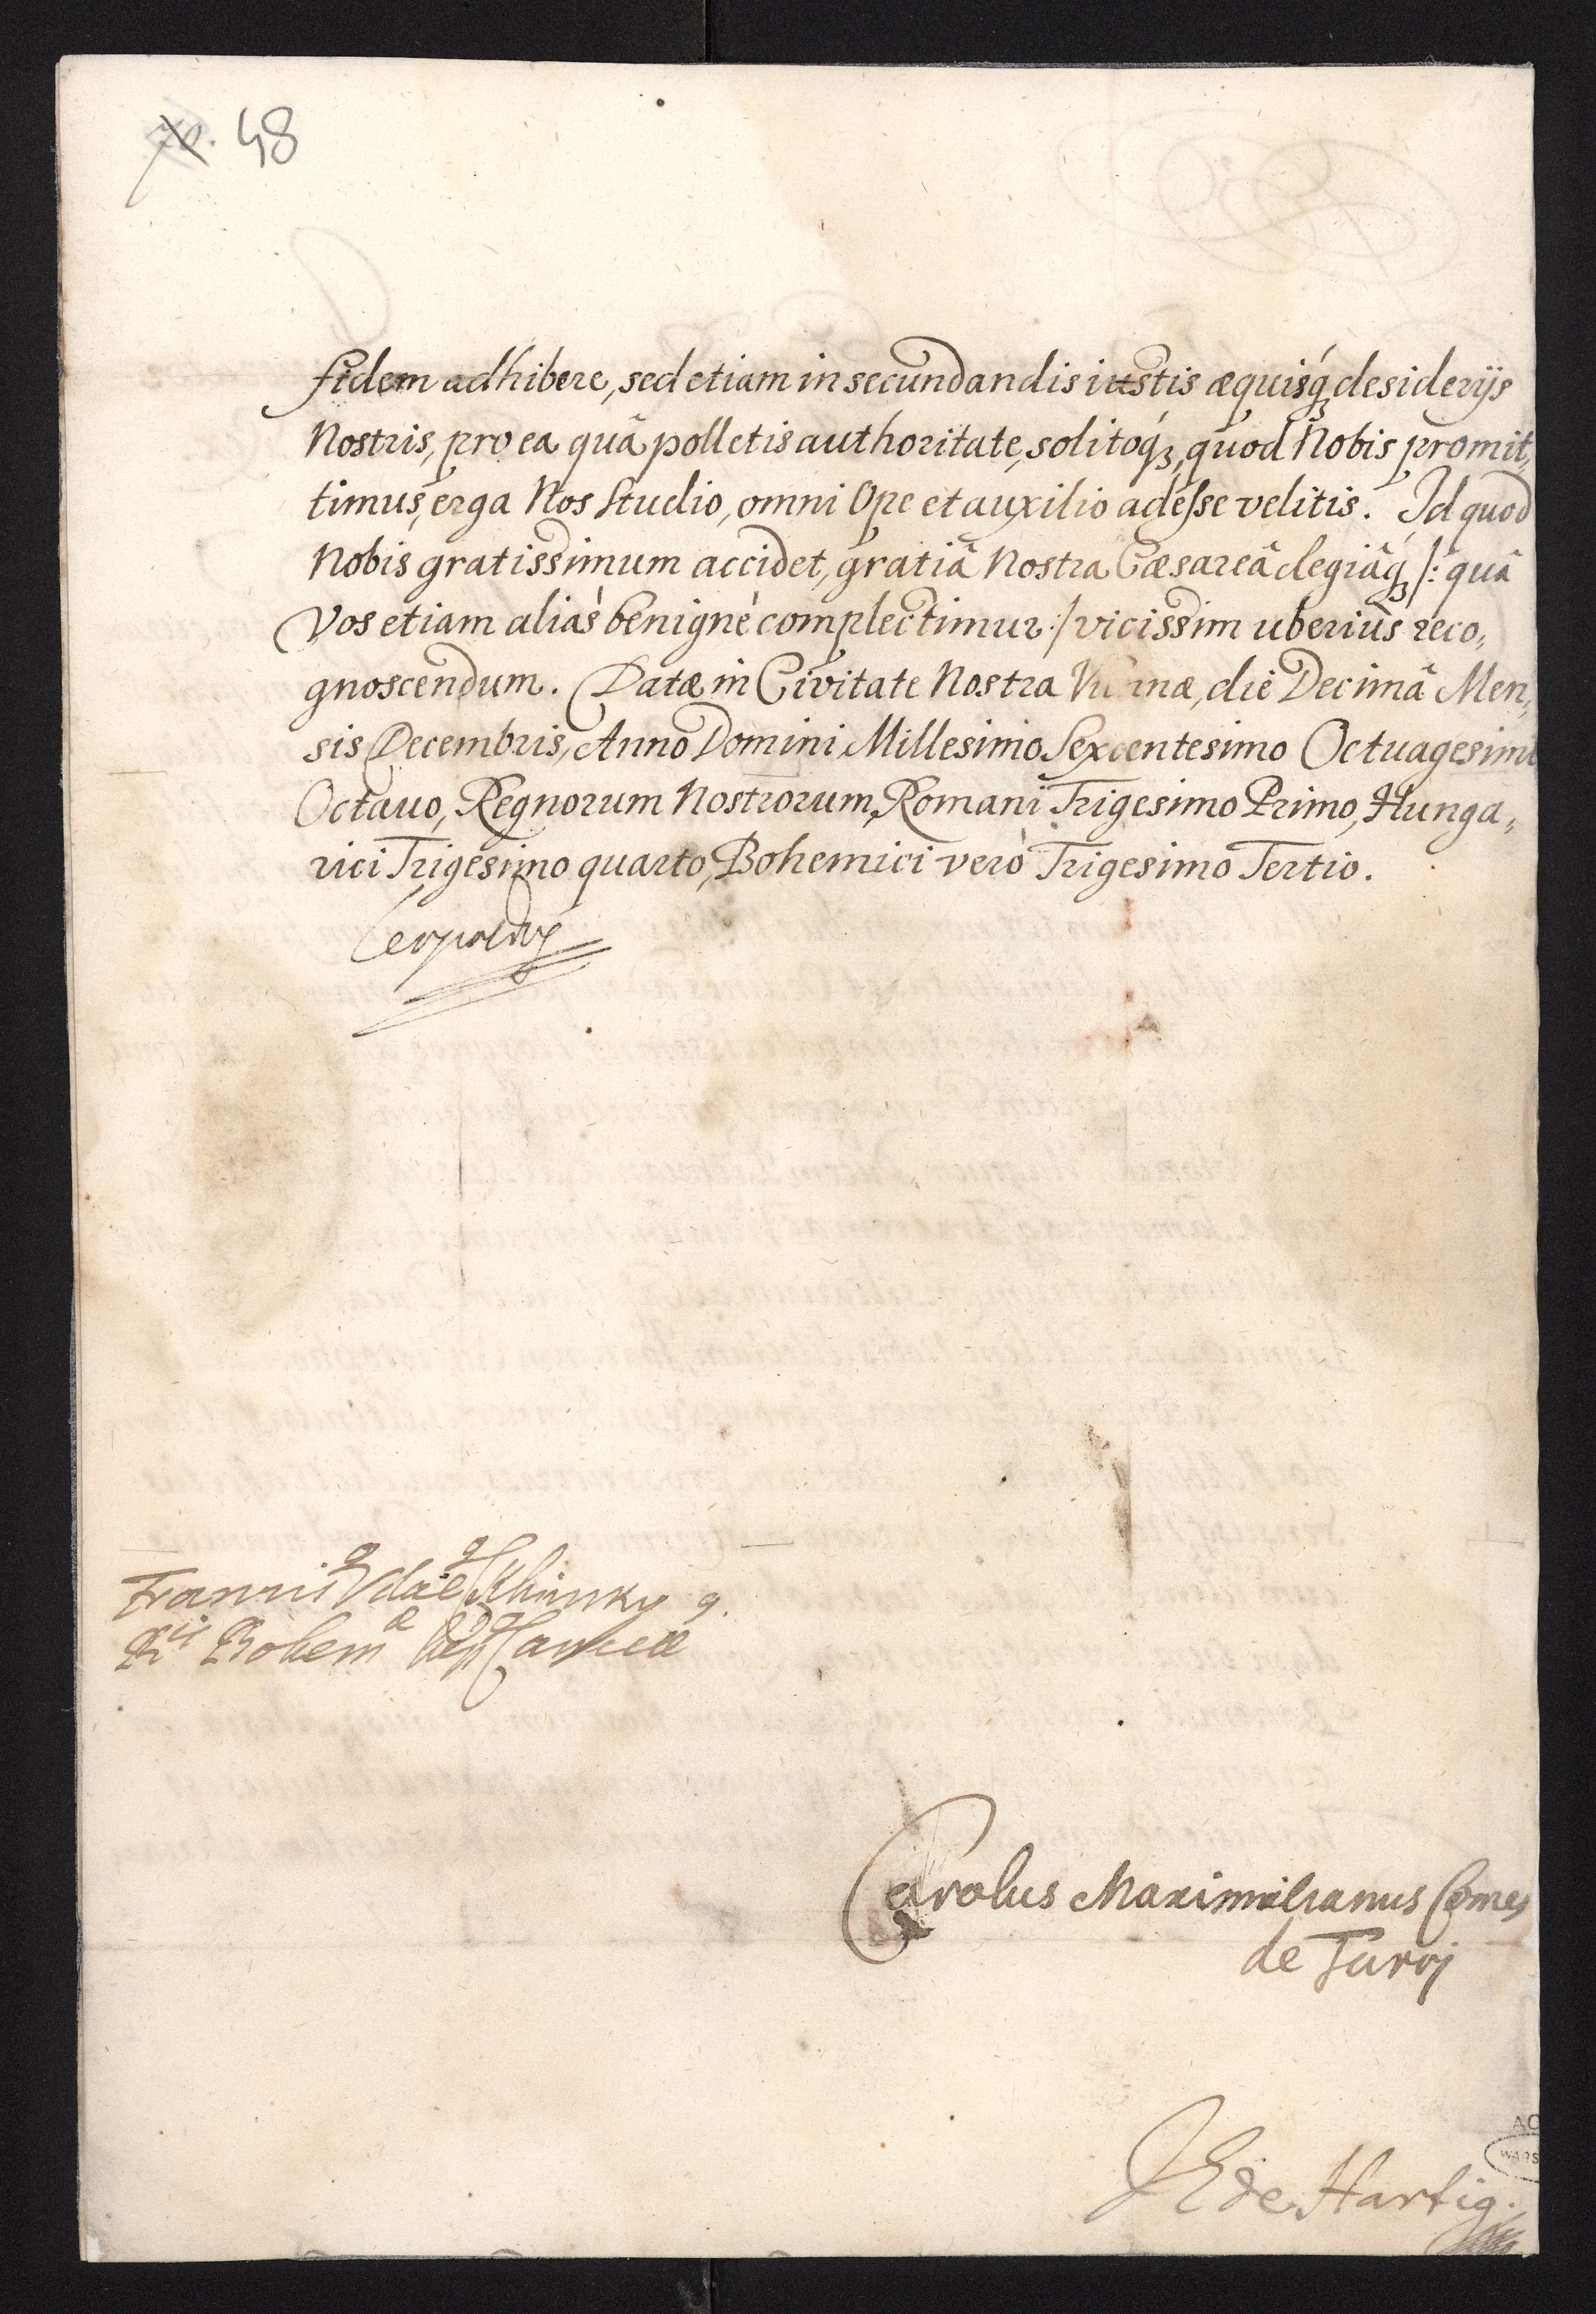 48
fidem adhibere, sed etiam in secundandis iustis æquisq́ꝫ desiderijs
Nostris, pro ea quâ polletis authoritate, solitoq́ꝫ, quod Nobis promit„
timus, erga Nos Studio, omni Ope et auxilio adesse velitis. Id quod
Nobis gratissimum accidet, gratiâ Nostra Cæsareâ Regiâqꝫ /: quâ
Vos etiam aliàs benignè complectimur :/ vicissim uberiùs reco„
gnoscendum. Datæ in Civitate Nostra Viennæ, die Decimâ Men„
sis Decembris, Anno Domini Millesimo Sexcentesimo Octuagesimo
Octauo, Regnorum Nostrorum, Romani Trigesimo Primo, Hunga„
rici Trigesimo quarto, Bohemici verò Trigesimo Tertio.
Leopoldus
Carolus Maximilianus Comes
de Turri
de Hartig.
WARS